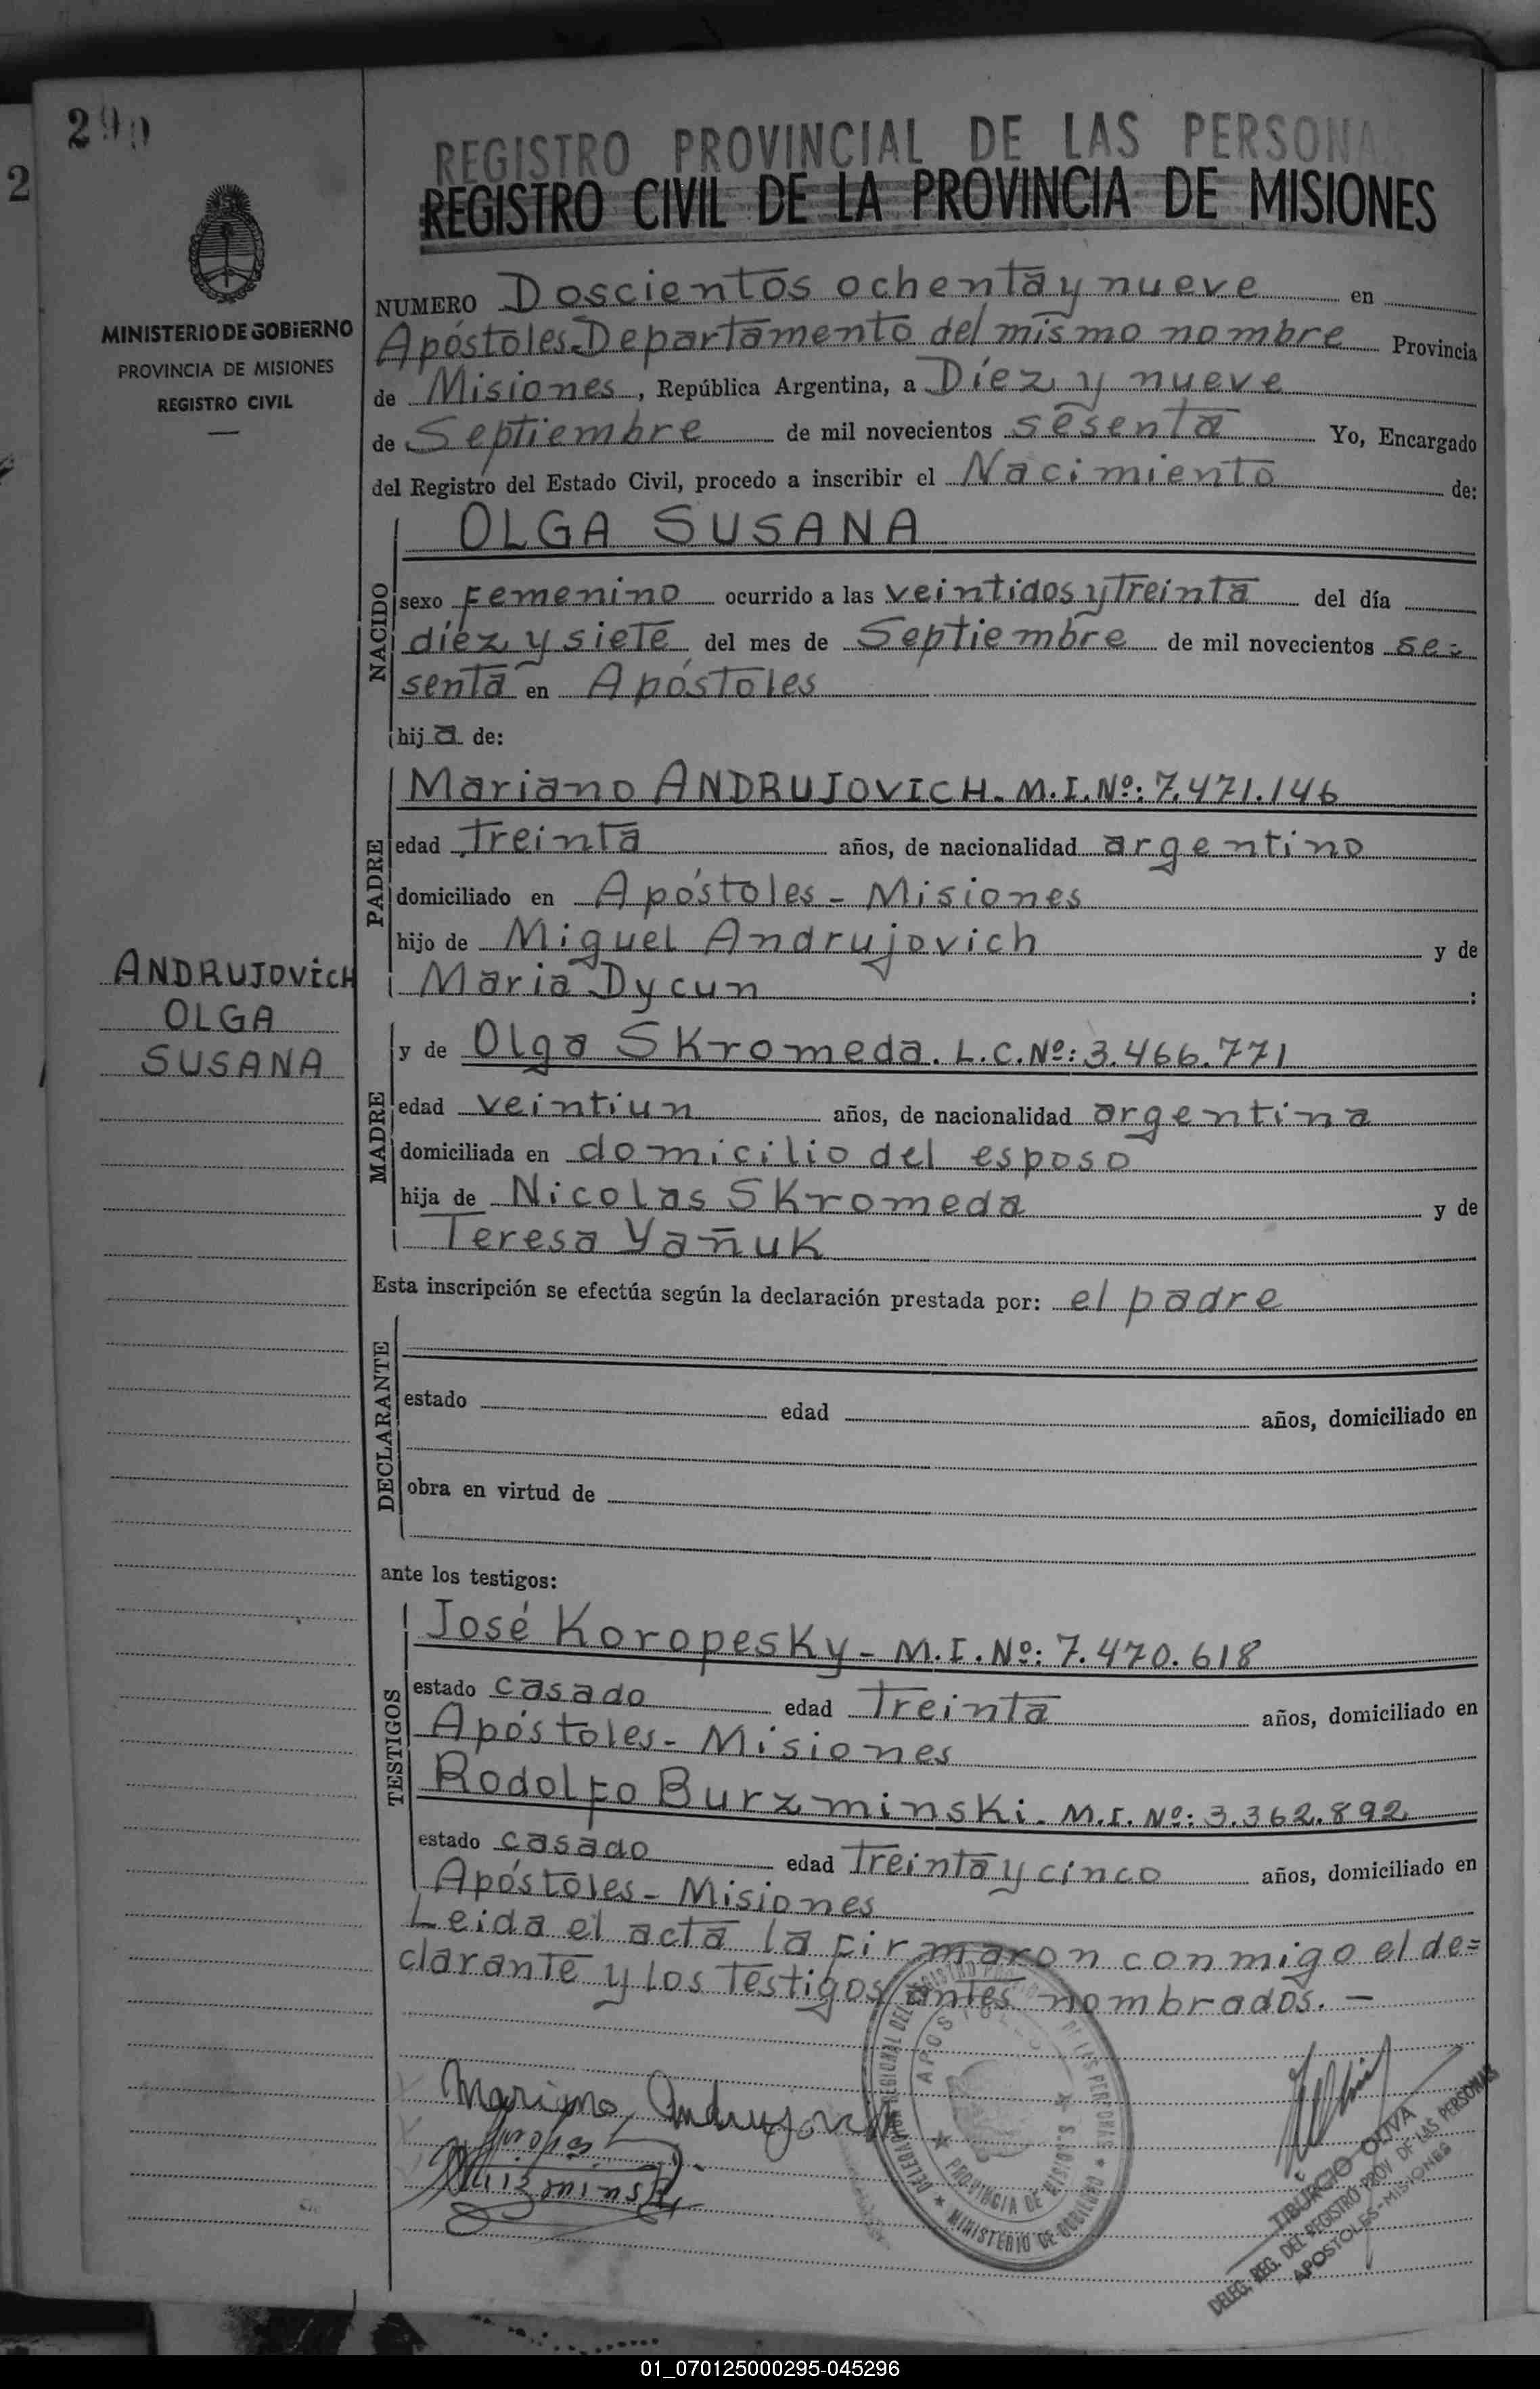 290
2
MINISTERIO DE GOBIERNO
PROVINCIA DE MISIONES
REGISTRO CIVIL
ANDRUJOVICH
OLGA
SUSANA
REGISTRO PROVINCIAL DE LAS PERSONA
REGISTRO CIVIL DE LA PROVINCIA DE MISIONES
NUMERO Doscientos ochenta y nueve en
Apóstoles-Departamento del mismo nombre Provincia
de Misiones, República Argentina, a Diez y nueve
de Septiembre de mil novecientos sesenta Yo, Encargado
del Registro del Estado Civil, procedo a inscribir el Nacimiento de:
NACIDO
OLGA SUSANA
sexo Femenino ocurrido a las veintidos y Treinta del día
diez y siete del mes de Septiembre de mil novecientos se-
senta en Apóstoles
hija de:
PADRE
Mariano ANDRUJOVICH- M.I.Nº: 7.471.146
edad Treinta años, de nacionalidad argentino
domiciliado en Apóstoles - Misiones
hijo de Miguel Andrujovich y de
Maria Dycun :
MADRE
y de Olga Skromeda. L.C.Nº: 3.466.771
edad veintiun años, de nacionalidad argentina
domiciliada en domicilio del esposo
hija de Nicolas Skromeda y de
Teresa Yañuk
Esta inscripción se efectúa según la declaración prestada por: el padre
DECLARANTE
estado edad años, domiciliado en
obra en virtud de
ante los testigos:
TESTIGOS
José Koropesky - M.I.Nº: 7.470.618
estado casado edad Treinta años, domiciliado en
Apóstoles- Misiones
Rodolfo Burzminski- M.I.Nº: 3.362.892
estado casado edad Treinta y cinco años, domiciliado en
Apóstoles- Misiones
Leida el acta la firmaron conmigo el de=
clarante y los Testigos antes nombrados. -
Mariano Andrujovich
APOSTOLES
PROVINCIA DE MISIONES
MINISTERIO DE GOBIERNO
TIBURCIO OLIVA
DELEG. REG. DEL REGISTRO PROV. DE LAS PERSONAS
APOSTOLES-MISIONES
01_070125000295-045296